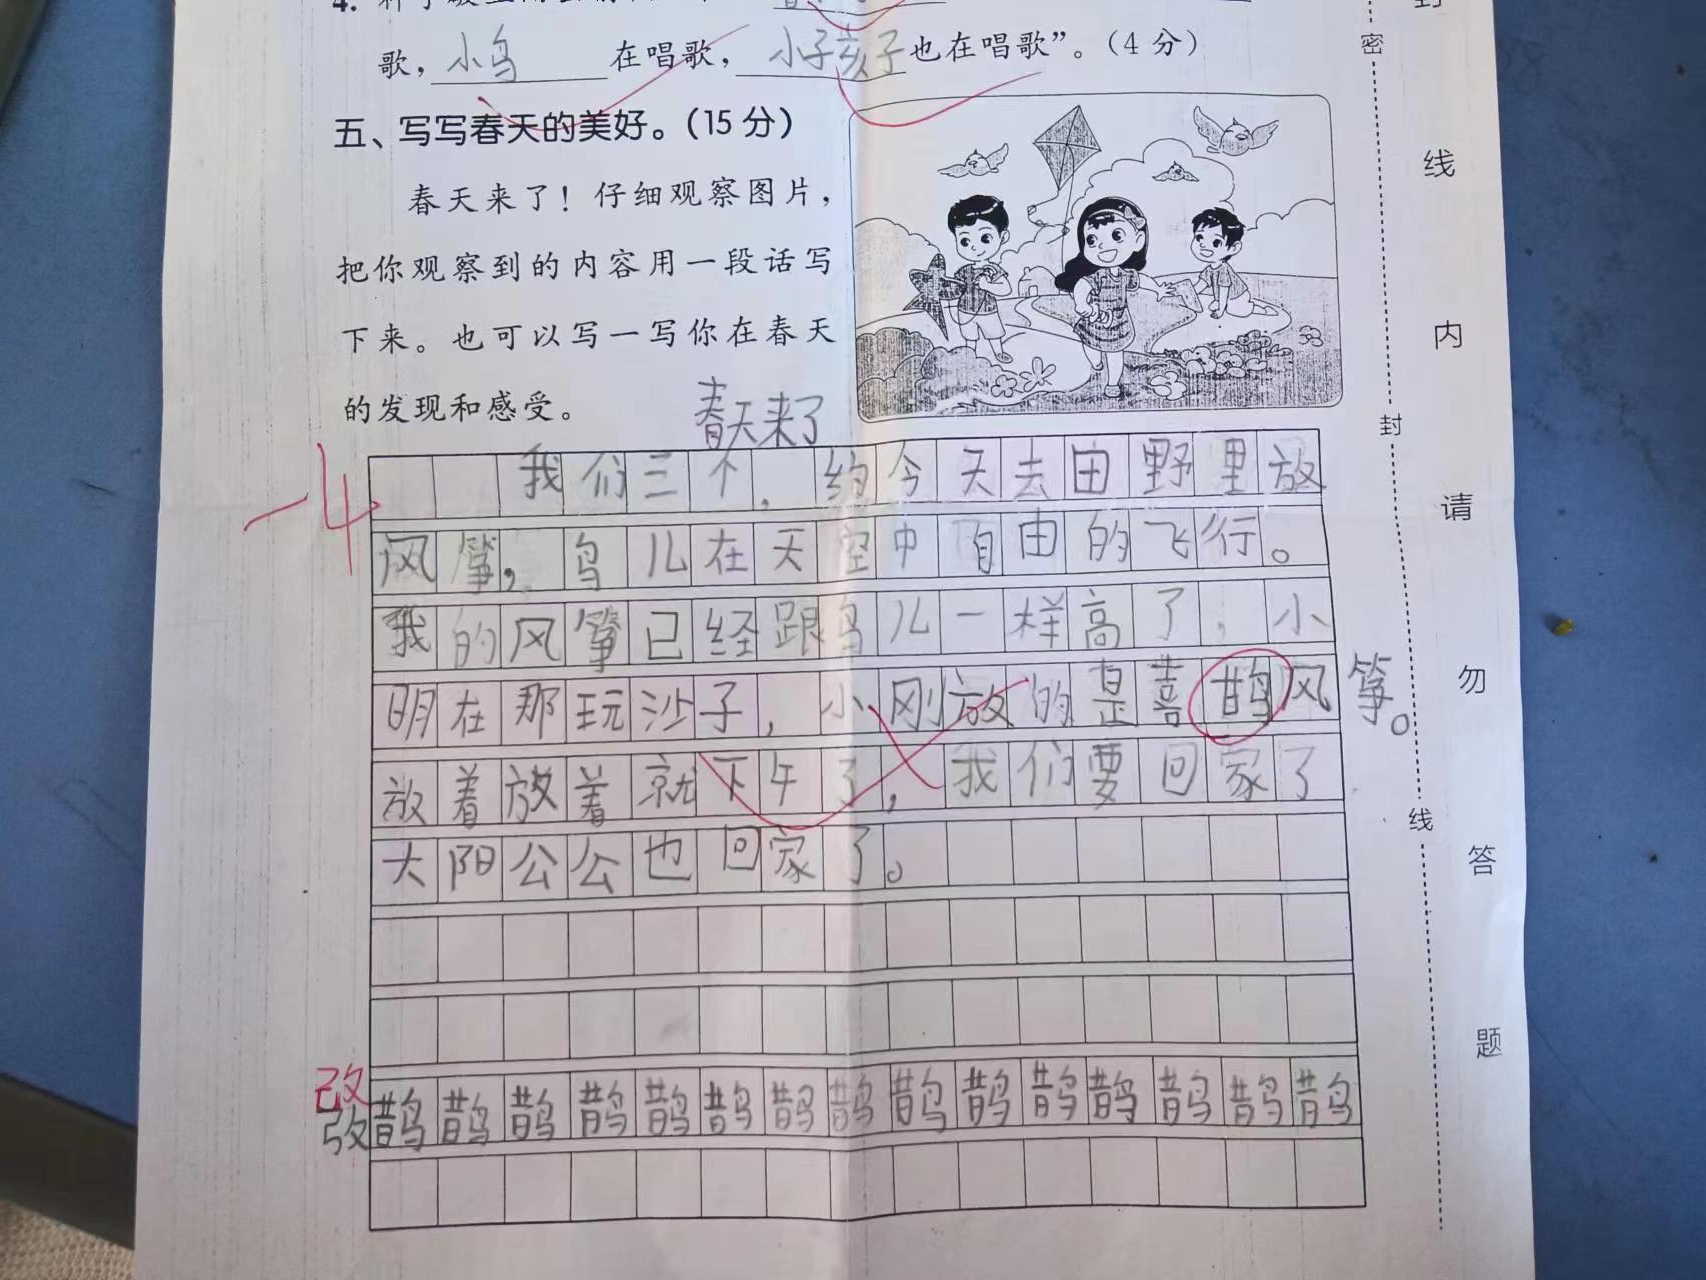 歌，小鸟在唱歌，小子孩子也在唱歌”。（4分）
五、写写春天的美好。（15分）
春天来了！仔细观察图片，
把你观察到的内容用一段话写
下来。也可以写一写你在春天
的发现和感受。
春天来了
-4
我们三个，约今天去田野里放
风筝，鸟儿在天空中自由的飞行。
我的风筝已经跟鸟儿一样高了，小
明在那玩沙子，小刚放的是喜鹊风筝。
放着放着就下午了，我们要回家了
大阳公公也回家了。
改
改鹊鹊鹊鹊鹊鹊鹊鹊鹊鹊鹊鹊鹊鹊鹊
密
封
线
封
线
内
请
勿
答
题